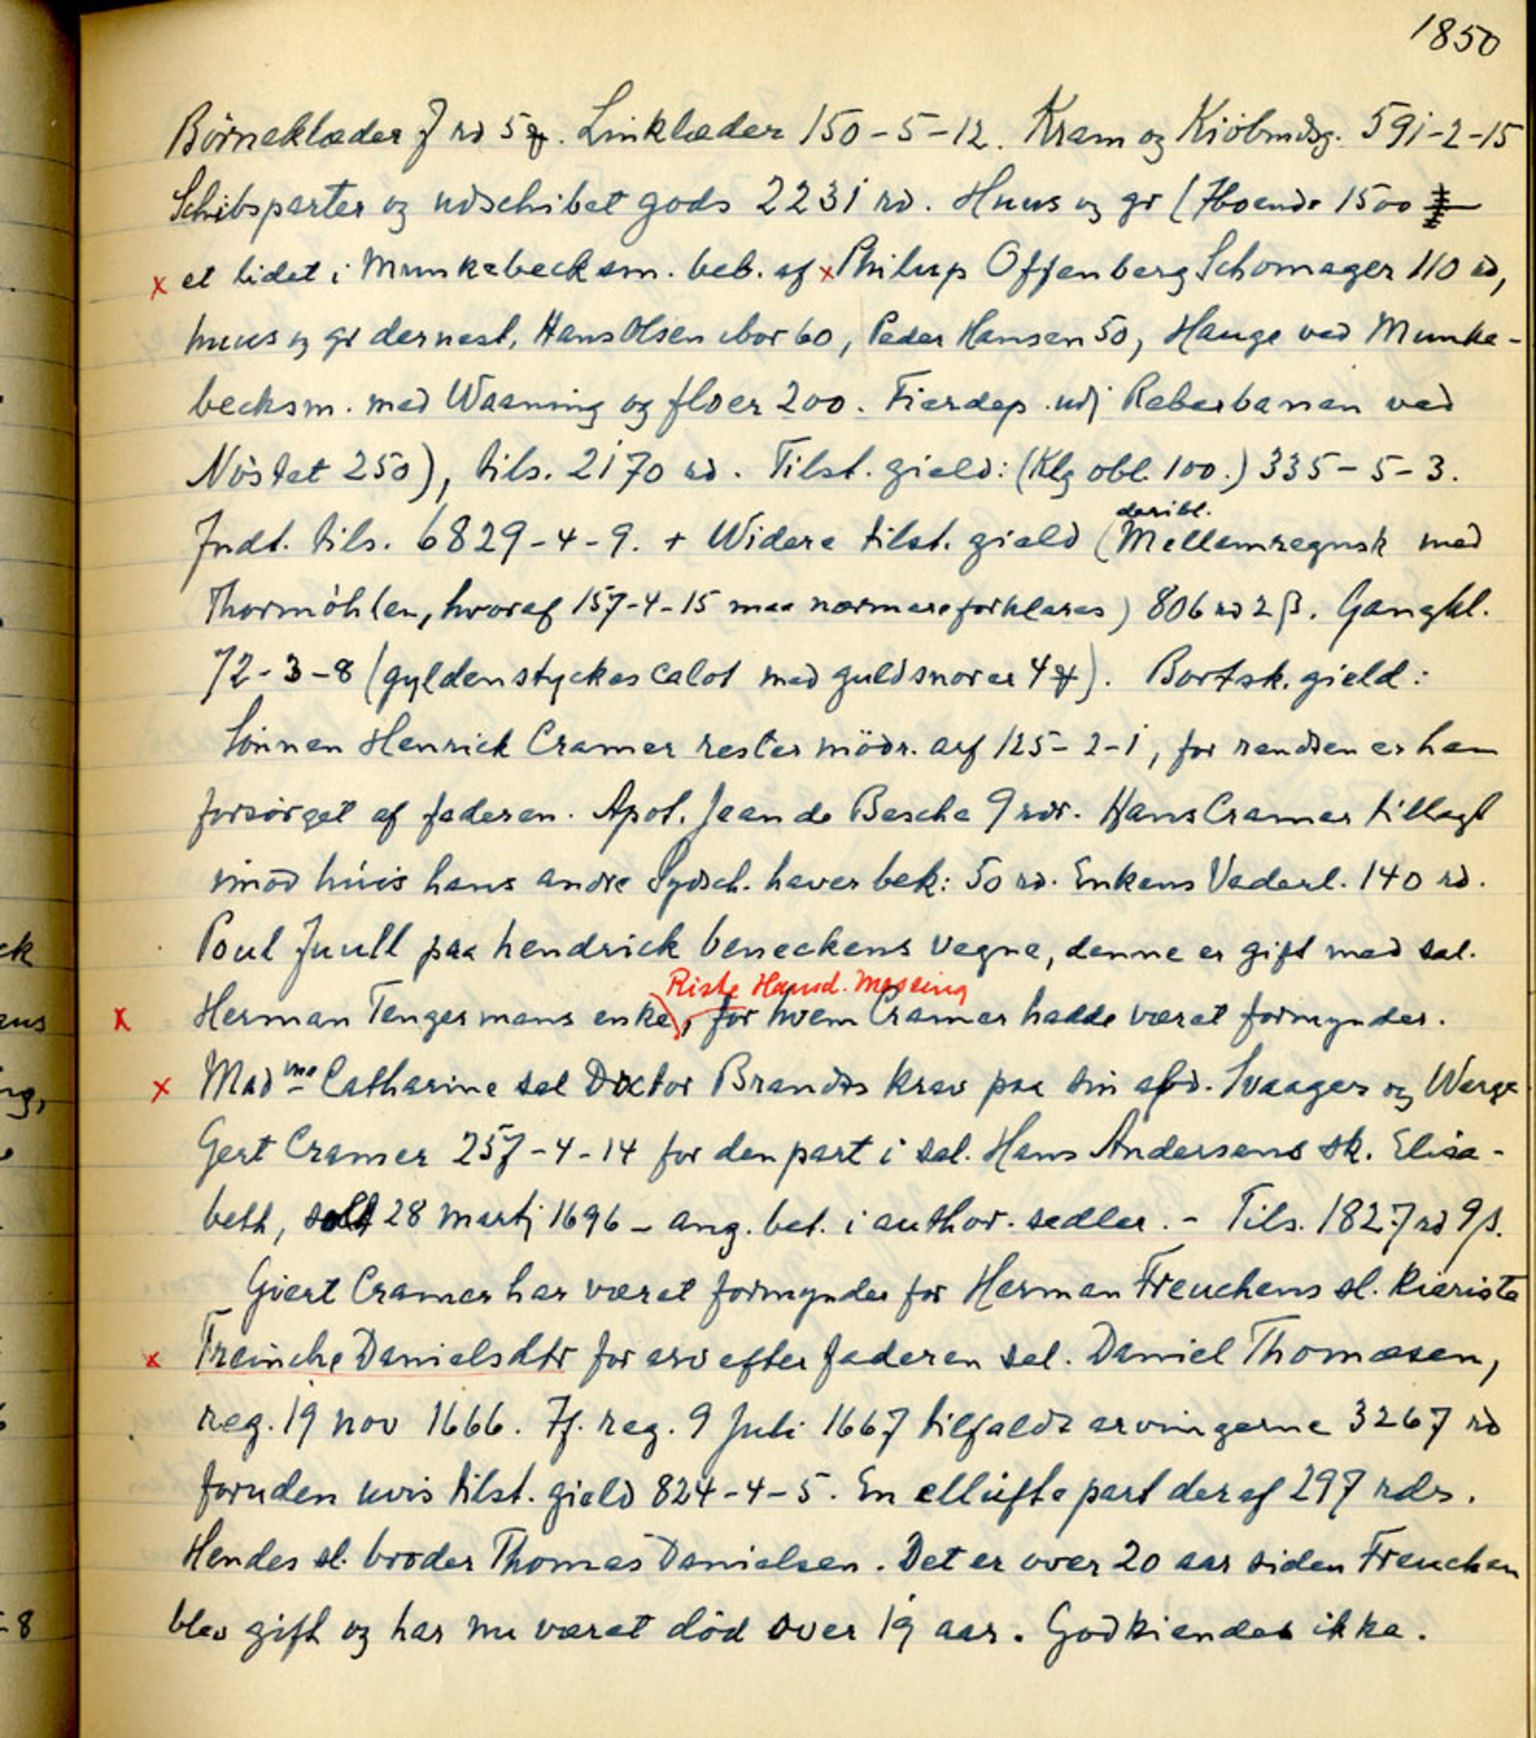 1850
Börneklæder 7 rd 5 ȹ. Linklæder 150-5-12. Kram og Kiöbmdsg. 591-2-15
Schibsparter og udschibet gods 2231 rd. Huus og gr (Iboende 1500
x et lidet i Munkebecksm. beb. af x Philup Offenberg Schomager 110 rd,
huus og gr dernest, Hans Olsen ibor 60, Peder Hansen 50, Hauge ved Munke-
becksm. med Waaning og floer 200. Fierdep. udj Reberbanen ved
Nöstet 250), tils. 2170 rd. Tilst. gield: (Klg obl. 100.) 335-5-3.
Indt. tils. 6829-4-9. + Widere tilst. gield (Mellemregnsk med
deribl.
Thormöhlen, hvoraf 157-4-15 maa nærmere forklares) 806 rd 2 β. Gangkl.
72-3-8 (gyldenstyckes calot med guldsnorer 4 ȹ). Bortsk. gield:
Sönnen Henrick Cramer rester mödr. arf 125-2-1, for rendsen er han
forsörget af faderen. Apot. Jean de Besche 9 rdr. Hans Cramer tillagt
imod huis hans andre Sydsch. haver bek: 50 rd. Enkens Vederl. 140 rd.
Poul Juull paa hendrick beneckens vegne, denne er gift med sal.
Riste Hansd. Messing
x Herman Tengermans enke), for hvem Cramer hadde været formynder.
x Mad me Catharine sal Doctor Brandts krav paa sin afd. Svaager og Werge
Gert Cramer 257-4-14 for den part i sal. Hans Andersens sk. Elisa-
beth, solt 28 martj 1696 - ang. bet. i author. sedler. - Tils. 1827 rd 9 β.
Giert Cramer har været formynder for Herman Freuchens sl. kieriste
x Freinche Danielsdtr for arv efter faderen sal. Daniel Thomæsen,
reg. 19 nov 1666. If. reg. 9 Juli 1667 tilfaldt arvingerne 3267 rd
foruden uvis tilst. gield 824-4-5. En ellufte part deraf 297 rdr.
Hendes sl. broder Thomas Danielsen. Det er over 20 aar siden Freuchen
blev gift og har nu været död over 19 aar. Godkiendes ikke.